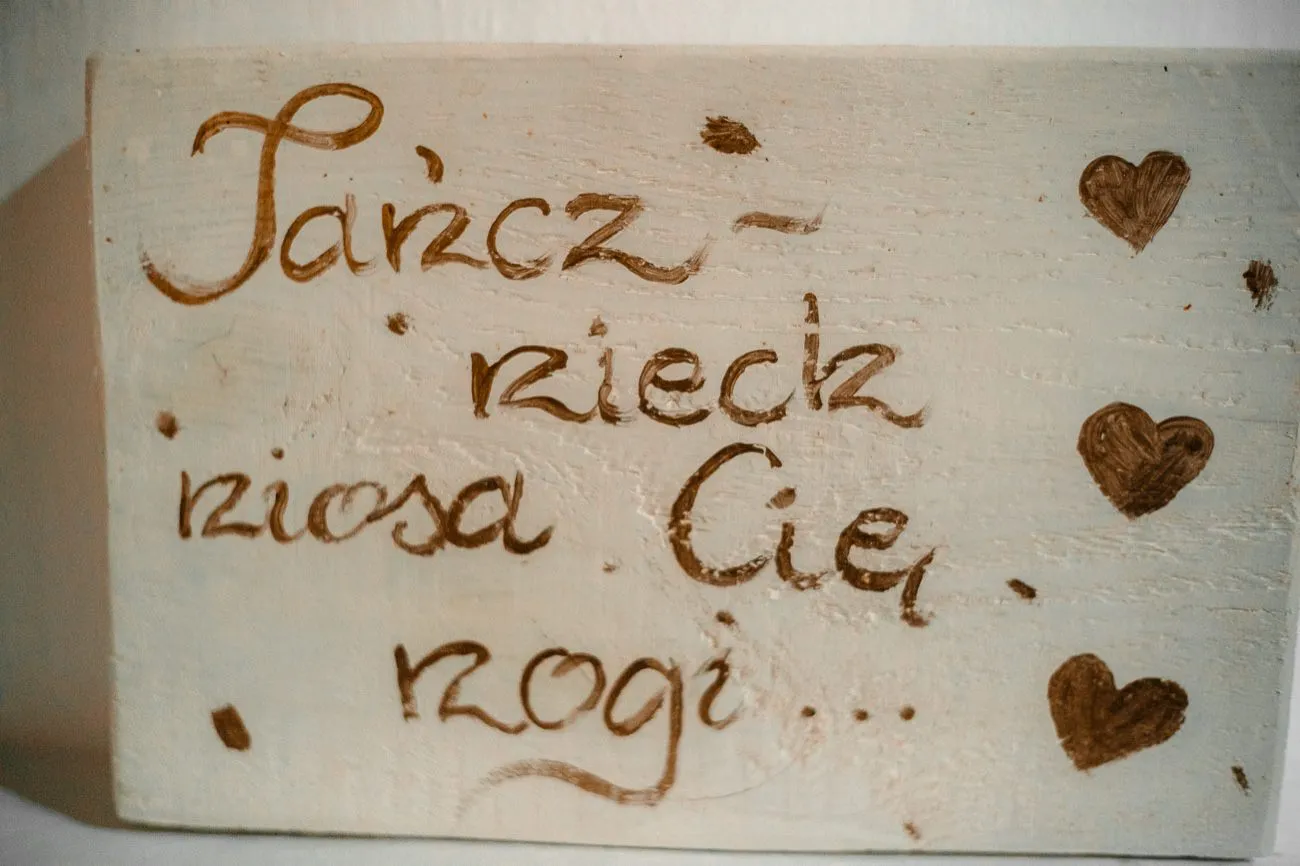 Tańcz -
niech
niosą Cię
nogi...